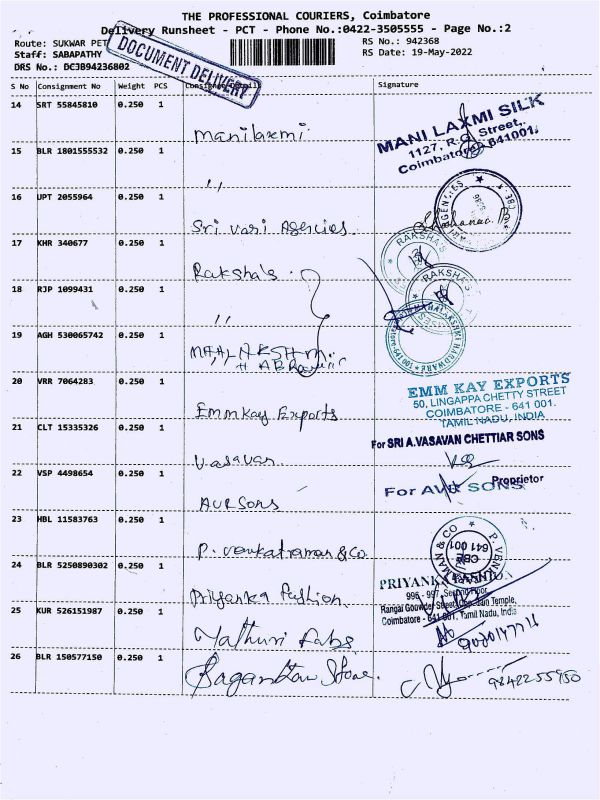 THE PROFESSIONAL COURIERS, Coimbatore
Delivery Runsheet - PCT - Phone No.:0422-3505555 - Page No.:2
Route: SUKWAR PET
RS No.: 942368
Staff: SABAPATHY
RS Date: 19-May-2022
DRS No.: DCJB94236802
DOCUMENT DELIVERY
S No Consignment No Weight PCS Signature
14 SRT 55845810 0.250 1
Manilaxmi
MANI LAXMI SILK
1127, R.G. Street,
Coimbatore 641001.
15 BLR 1801555532 0.250 1
,,
16 UPT 2055964 0.250 1
Sri vari Agencies.
AGENCIES CBE
17 KHR 340677 0.250 1
Raksha's
RAKSHA'S
18 RJP 1099431 0.250 1
,,
RAKSHA'S
19 AGH 530065742 0.250 1
HARDWARE
20 VRR 7064283 0.250 1
Emmkay Exports
EMM KAY EXPORTS
50, LINGAPPA CHETTY STREET
COIMBATORE - 641 001.
TAMIL NADU, INDIA
21 CLT 15335326 0.250 1
Vasavan
For SRI A.VASAVAN CHETTIAR SONS
Proprietor
22 VSP 4498654 0.250 1
AVR Sons
For AVR SONS
23 HBL 11583763 0.250 1
P. Venkatraman & Co.
MAN & CO P. VEN
CBE
641 001
24 BLR 5250890302 0.250 1
Priyanka Fashion.
PRIYANKA FASHION
996 - 997, Second Floor,
Rangai Gowder Street, Jain Temple,
Coimbatore - 641 001, Tamil Nadu, India
25 KUR 526151987 0.250 1
26 BLR 150577150 0.250 1
9842255950